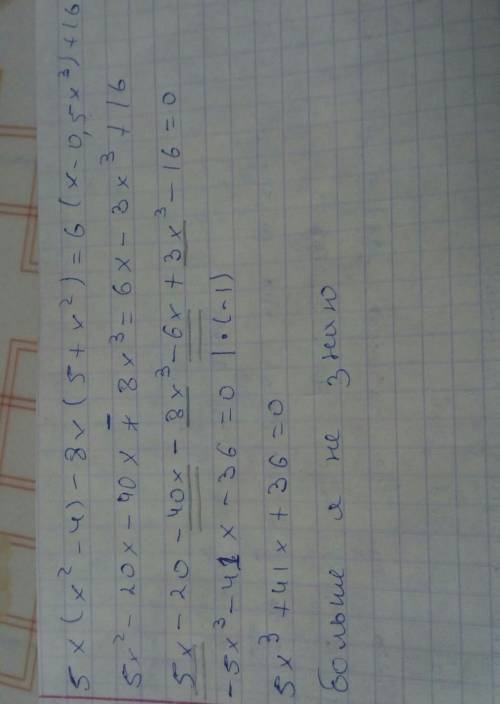 5x(x²-4)-8x(5+x²)=6(x-0,5x³)+16
5x²-20x-40x-8x³=6x-3x³+16
5x-20-40x-8x³-6x+3x³-16=0
-5x³-41x-36=0 |·(-1)
5x³+41x+36=0
больше я не знаю